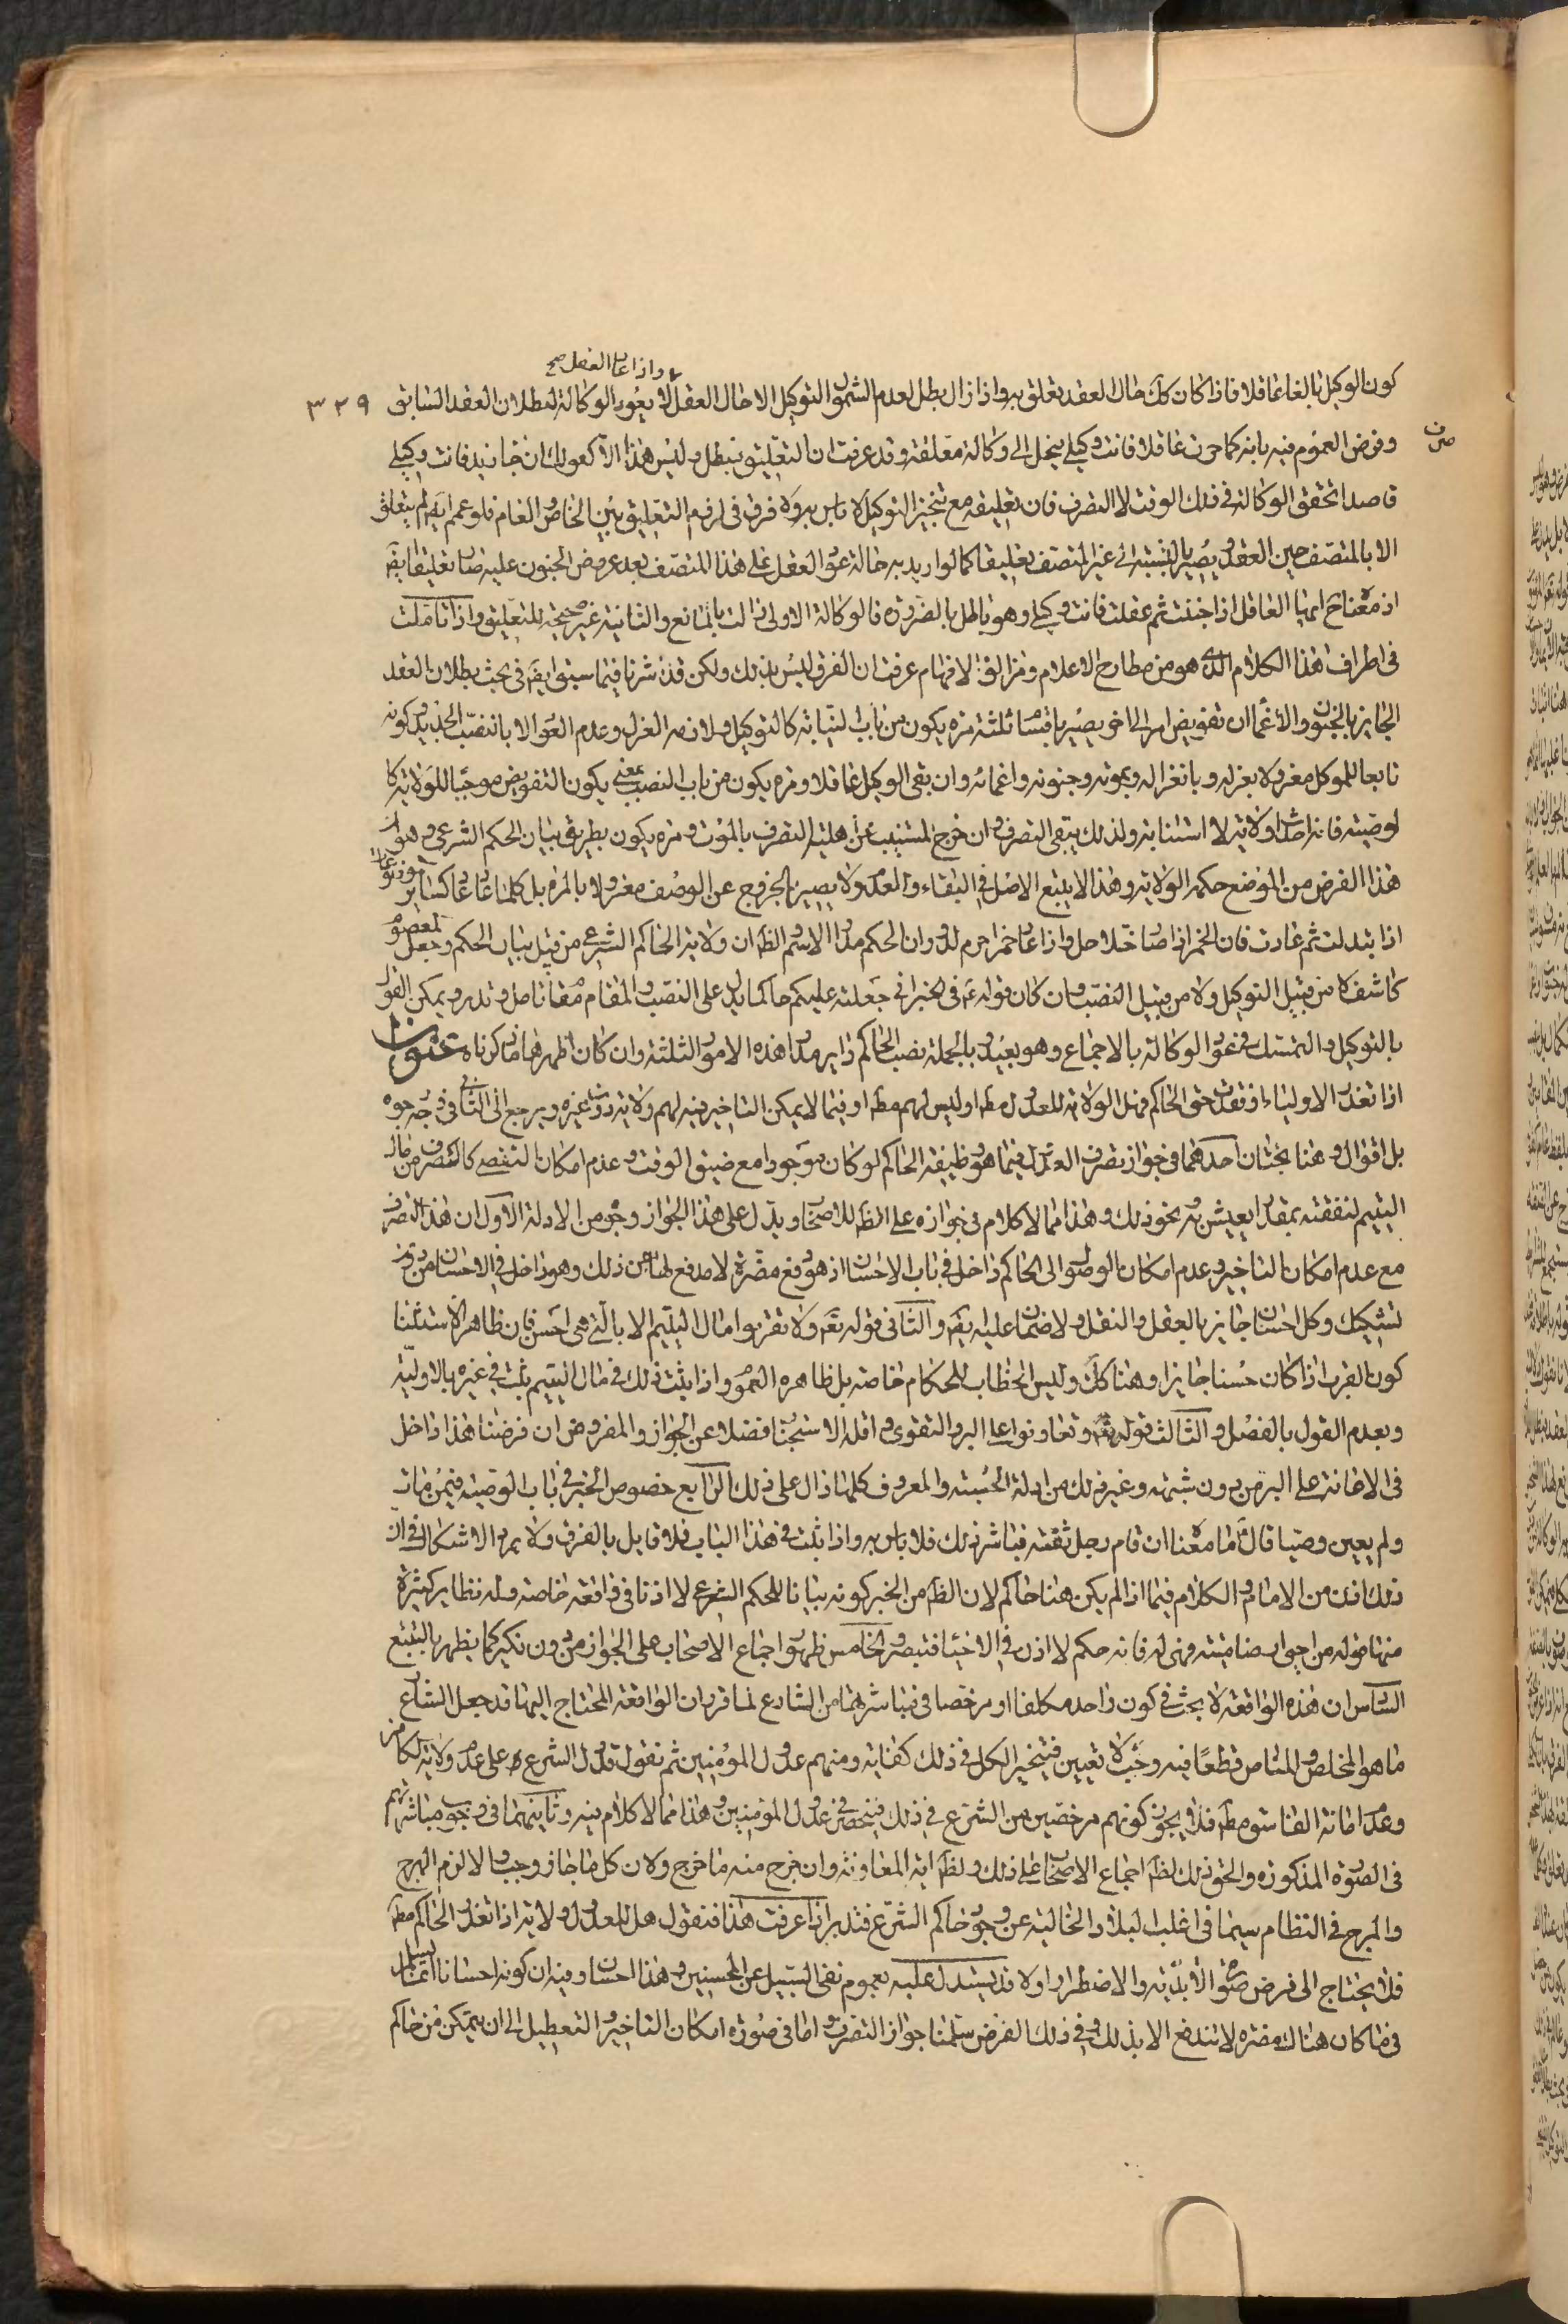 واذا عاد العقل صح
كون الوكيل بالغا عاقلا فاذا كان كك حال العقد تعلق به واذا زال بطل لعدم الشمول التوكيل الا حال العقل لا يعود الوكالة لبطلان العقد السابق ٣٢٩
وفرض العموم فيه بانه كما صرت عاقلا فانت وكيلى ينحل الى وكالة معلقة وقد عرفت ان التعليق مبطل وليس هذا الا كقولك ان جاء زيد فانت وكيلى
قاصدا تحقق الوكالة فى ذلك الوقت لا التصرف فان تعليقه مع تنجيز التوكيل لا باس به ولا فرق فى لزوم التعليق بين الخاص والعام فلو عمم ايضا لم يتعلق
الا بالمتصف حين العقد ويصير بالنسبة الى غير المتصف تعليقا كما لو اريد به حالة عود العقل على هذا المتصف بعد عروض الجنون عليه صار تعليقا ايضا
اذ معناه ح ايها العاقل اذا جننت ثم عقلت فانت وكيلى وهو باطل بالضرورة فالوكالة الاولى زالت بالمانع والثانية غير صحيحة للتعليق واذا تاملت
فى اطراف هذا الكلام الذى هو من مطارح الاعلام ومزالق الافهام عرفت ان الفرق ليس بذلك ولكن قد اشرنا فيما سبق ايضا فى بحث بطلان العقد
الجايز بالجنون والاغماء ان تفويض امر الى اخر يصير باقسام ثلثة مرة يكون من باب النيابة كالتوكيل ولازمه العزل وعدم العود الا بانتصاب الجديد وكونه
تابعا للموكل معزولا بعزله وبانعزاله وبموته وجنونه واغمائه وان بقى الوكيل عاقلا ومرة يكون من باب النصب بمعنى يكون التفويض موجبا للولاية كا
لوصية فانه احداث ولاية لا استنابة ولذلك يبقى التصرف وان خرج المستنيب عن اهلية التصرف بالموت ومرة يكون بطريق بيان الحكم الشرعى وهو ان
هذا الفرض من الموضع حكمه الولاية وهذا لا يتبع الاصل فى البقاء والعدم ولا يصير بالخروج عن الوصف معزولا بالمرة بل كلما عاد عاد كساير الموضوعات
اذا تبدلت ثم عادت فان الخمر اذا صار خلا حل واذا عاد خمرا حرم لدوران الحكم مدار الاسم الظ ان ولاية الحاكم الشرعى من قبيل بيان الحكم وجعل المعصوم
كاشف لا من قبيل التوكيل ولا من قبيل النصب وان كان قوله ع فى الخبر انى جعلته عليكم حاكما يدل على النصب والمقام مقام تامل وتدبر ويمكن القول
بالتوكيل والتمسك فى عود الوكالة بالاجماع وهو بعيد وبالجملة نصب الحاكم داير مدار هذه الامور الثلثة وان كان اظهرها ما ذكرناه عنوان
اذا تعذر الاولياء او فقد حتى الحاكم فهل الولاية للعدول مط او ليس لهم مط او فيما لا يمكن التاخير فيه لهم ولاية دون غيره ويرجع الى الثانى فى وجه وجوه
بل اقوال وهنا بحثان احدهما فى جواز تصرف العدول فيما هو وظيفة الحاكم لو كان موجودا مع ضيق الوقت وعدم امكان التفصى كالتصرف من مال
اليتيم لنفقته بمقدار يعيش به ونحو ذلك وهذا مما لا كلام فى جوازه على الظ للاصحاب ويدل على هذا الجواز وجوه من الادلة الاول ان هذا التصرف
مع عدم امكان التاخير وعدم امكان الوصول الى الحاكم داخل فى باب الاحسان اذ هو دفع مضرة لا مدفع لها من ذلك وهو داخل فى الاحسان من دون
تشكيك وكل احسان جايز بالعقل والنقل ولا ضمان عليه ايضا والثانى قوله تع ولا تقربوا مال اليتيم الا بالتى هى احسن فان ظاهر الاستثناء
كون القرب اذا كان حسنا جايزا وهنا كك وليس الخطاب للحكام خاصة بل ظاهره العموم واذا ثبت ذلك فى مال اليتيم يثبت فى غيره بالاولية
وبعدم القول بالفصل والثالث قوله تع وتعاونوا على البر والتقوى واقله الاستحباب فضلا عن الجواز والمفروض ان فرضنا هذا داخل
فى الاعانة على البر من دون شبهة وغير ذلك من ادلة الحسبة والمعروف كلها دال على ذلك الرابع خصوص الخبر فى باب الوصية فيمن مات
ولم يعين وصيا قال ع ما معناه ان قام رجل ثقة فباشر ذلك فلا باس به واذا ثبت فى هذا الباب فلا قايل بالفرق ولا يرد الاشكال فى ان
ذلك اذن من الامام والكلام فيما اذا لم يكن هنا حاكم لان الظ من الخبر كونه بيانا للحكم الشرعى لا اذنا فى واقعة خاصة وله نظاير كثيرة
منها قوله من احيى ارضا ميتة فهى له فانه حكم لا اذن فى الاحياء فتبصر والخامس ظهور اجماع الاصحاب على الجواز من دون نكير كما يظهر بالتتبع
السادس ان هذه الواقعة لا بحث فى كون واحد مكلفا او مرخصا فى مباشرتها من الشارع لما قرر ان الواقعة المحتاج اليها قد جعل الشارع
ما هو المخلص والمناص قطعا فيه وحيث لا تعيين فيتخير الكل فى ذلك كفاية ومنهم عدول المؤمنين ثم نقول قد دل الشرع على عدم ولاية الكافر
وعدم امانة الفاسق مط فلا يجوز كونهم مرخصين من الشرع فى ذلك فينحصر فى عدول المؤمنين وهذا مما لا كلام فيه وثانيهما فى وجوب مباشرتهم
فى الصورة المذكورة والحق ذلك لظ اجماع الاصحاب على ذلك ولظ اية المعاونة وان خرج منه ما خرج ولان كل ما جاز وجب والا لزم الهرج
والمرج فى النظام سيما فى اغلب البلاد الخالية عن وجود حاكم الشرع فتدبر اذا عرفت هذا فنقول هل للعدول ولاية اذا تعذر الحاكم مط
فلا يحتاج الى فرض ضيق والاضطرار او لا قد يستدل عليه بعموم نفى السبيل عن المحسنين وهذا احسان وفيه ان كونه احسانا انما يسلم
فى ما كان هناك مضرة لا تندفع الا بذلك وفى ذلك الفرض سلمنا جواز التصرف واما فى صورة امكان التاخير والتعطيل الى ان يتمكن من حاكم